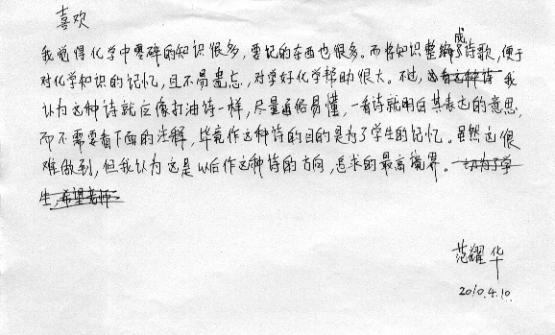 喜欢
我觉得化学中零碎的知识很多，要记的东西也很多。而将知识整编成诗歌，便于
对化学知识的记忆，且不易遗忘，对学好化学帮助很大。不过，我
认为这种诗就应像打油诗一样，尽量通俗易懂，一看诗就明白其表达的意思，
而不需要看下面的注解，毕竟作这种诗的目的是为了学生的记忆。虽然这很
难做到，但我认为这是以后作这种诗的方向，追求的最高境界。一切为了学
生，希望老师
范耀华
2010.4.10.